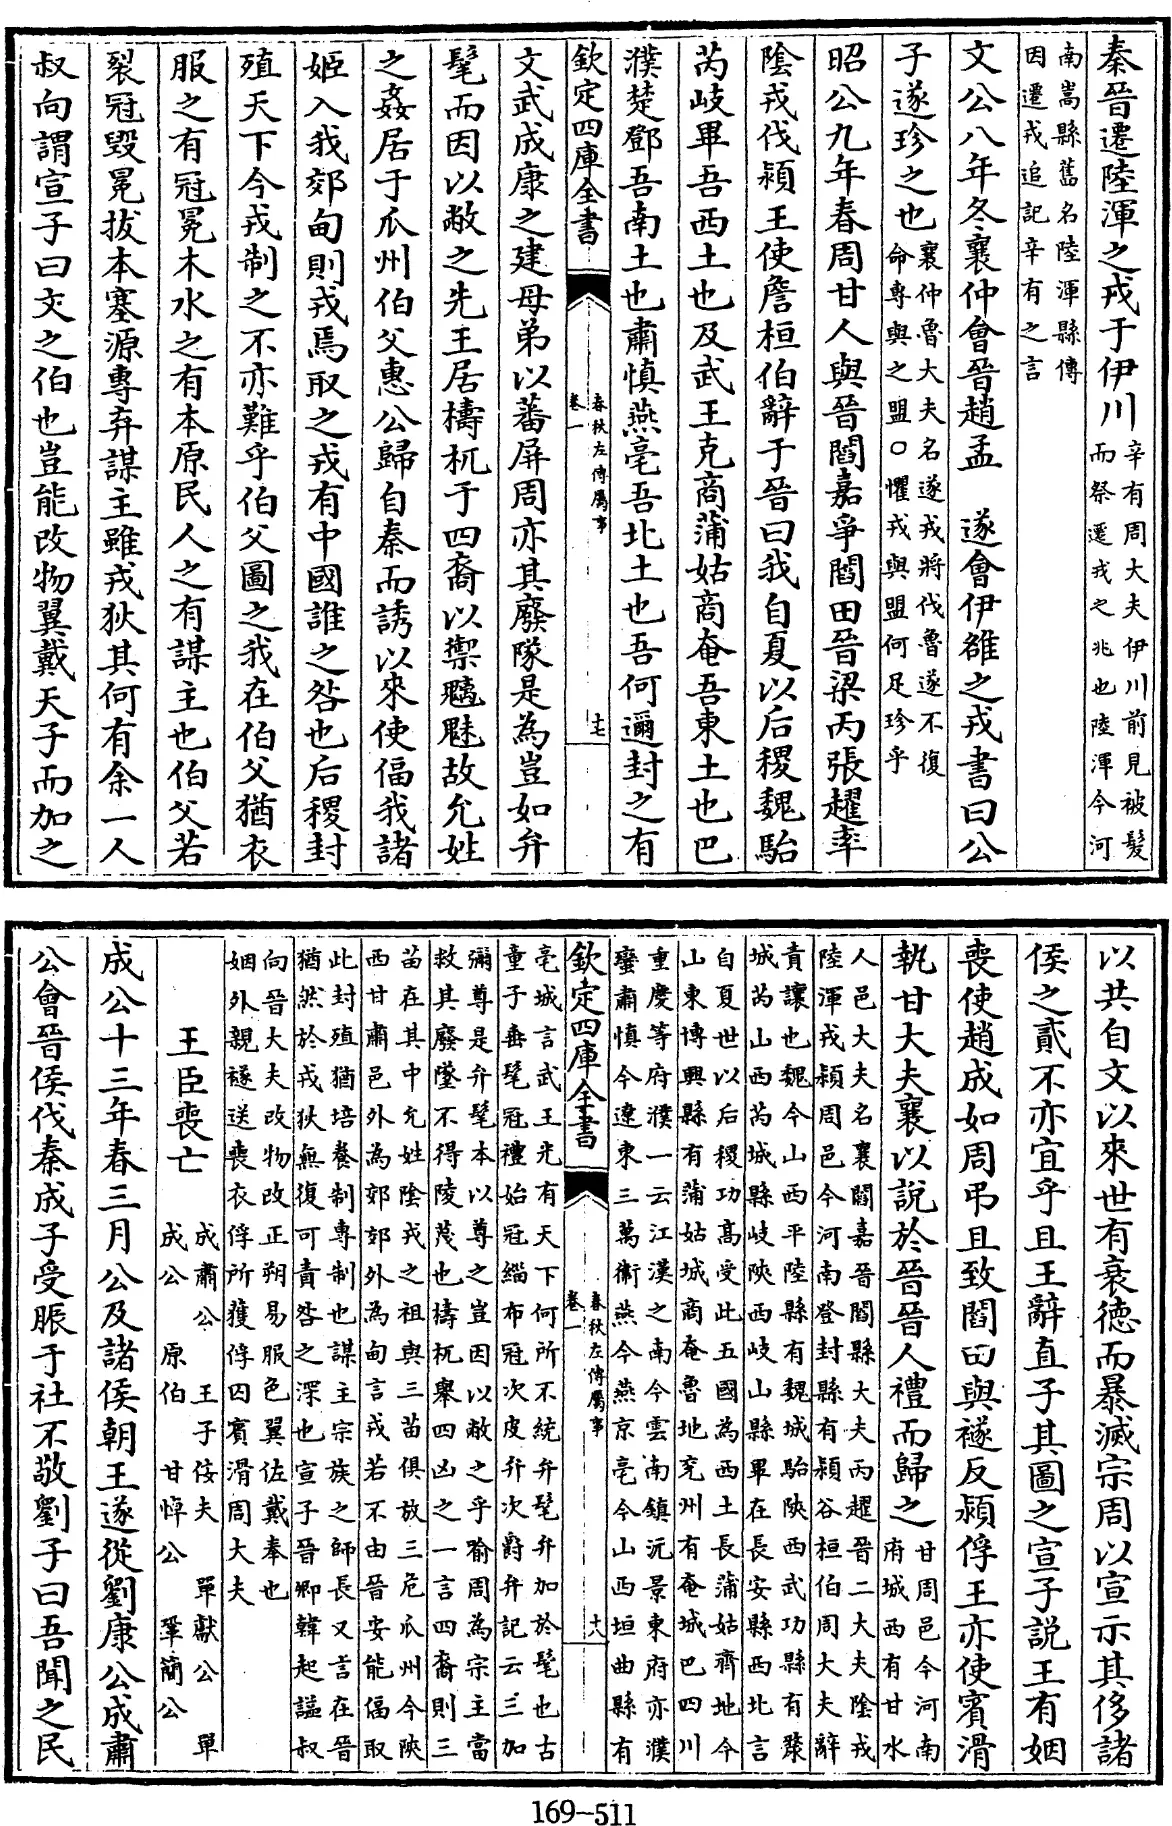 秦晉遷陸渾之戎于伊川
辛有周大夫伊川前見被髮
而祭遷戎之兆也陸渾今河
南嵩縣舊名陸渾縣傳
因遷戎追記辛有之言
文公八年冬襄仲會晉趙孟　遂會伊雒之戎書曰公
子遂珍之也
襄仲魯大夫名遂戎將伐魯遂不復
命專與之盟○懼戎與盟何足珍乎
昭公九年春周甘人與晉閻嘉爭閻田晉梁丙張趯率
陰戎伐潁王使詹桓伯辭于晉曰我自夏以后稷魏駘
芮岐畢吾西土也及武王克商蒲姑商奄吾東土也巴
濮楚鄧吾南土也肅慎燕亳吾北土也吾何邇封之有
欽定四庫全書
春秋左傳屬事
卷一
十七
文武成康之建母弟以蕃屏周亦其廢隊是為豈如弁
髦而因以敝之先王居檮杌于四裔以禦魑魅故允姓
之姦居于瓜州伯父惠公歸自秦而誘以來使偪我諸
姬入我郊甸則戎焉取之戎有中國誰之咎也后稷封
殖天下今戎制之不亦難乎伯父圖之我在伯父猶衣
服之有冠冕木水之有本原民人之有謀主也伯父若
裂冠毀冕拔本塞源專弃謀主雖戎狄其何有余一人
叔向謂宣子曰文之伯也豈能改物翼戴天子而加之
以共自文以來世有衰德而暴滅宗周以宣示其侈諸
侯之貳不亦宜乎且王辭直子其圖之宣子說王有姻
喪使趙成如周弔且致閻田與襚反潁俘王亦使賓滑
執甘大夫襄以說於晉晉人禮而歸之
甘周邑今河南
府城西有甘水
人邑大夫名襄閻嘉晉閻縣大夫丙趯晉二大夫陰戎
陸渾戎潁周邑今河南登封縣有潁谷桓伯周大夫辭
責讓也魏今山西平陸縣有魏城駘陝西武功縣有斄
城芮山西芮城縣岐陝西岐山縣畢在長安縣西北言
自夏世以后稷功髙受此五國為西土長蒲姑齊地今
山東博興縣有蒲姑城商奄魯地兖州有奄城巴四川
重慶等府濮一云江漢之南今雲南鎮沅景東府亦濮
蠻肅慎今遼東三萬衛燕今燕京亳今山西垣曲縣有
欽定四庫全書
春秋左傳屬事
卷一
十八
亳城言武王先有天下何所不統弁髦弁加於髦也古
童子垂髦冠禮始冠緇布冠次皮弁次爵弁記云三加
彌尊是弁髦本以尊之豈因以敝之乎喻周為宗主當
救其廢墜不得陵蔑也檮杌舉四凶之一言四裔則三
苗在其中允姓陰戎之祖與三苗俱放三危瓜州今陝
西甘肅邑外為郊郊外為甸言戎若不由晉安能偪取
此封殖猶培養制專制也謀主宗族之師長又言在晉
猶然於戎狄無復可責咎之深也宣子晉卿韓起謚叔
向晉大夫改物改正朔易服色翼佐戴奉也
姻外親襚送喪衣俘所獲俘囚賓滑周大夫
王臣喪亡
成肅公　王子佞夫　單獻公　單
成公　原伯　甘悼公　鞏簡公
成公十三年春三月公及諸侯朝王遂從劉康公成肅
公會晉侯伐秦成子受脤于社不敬劉子曰吾聞之民
169-511